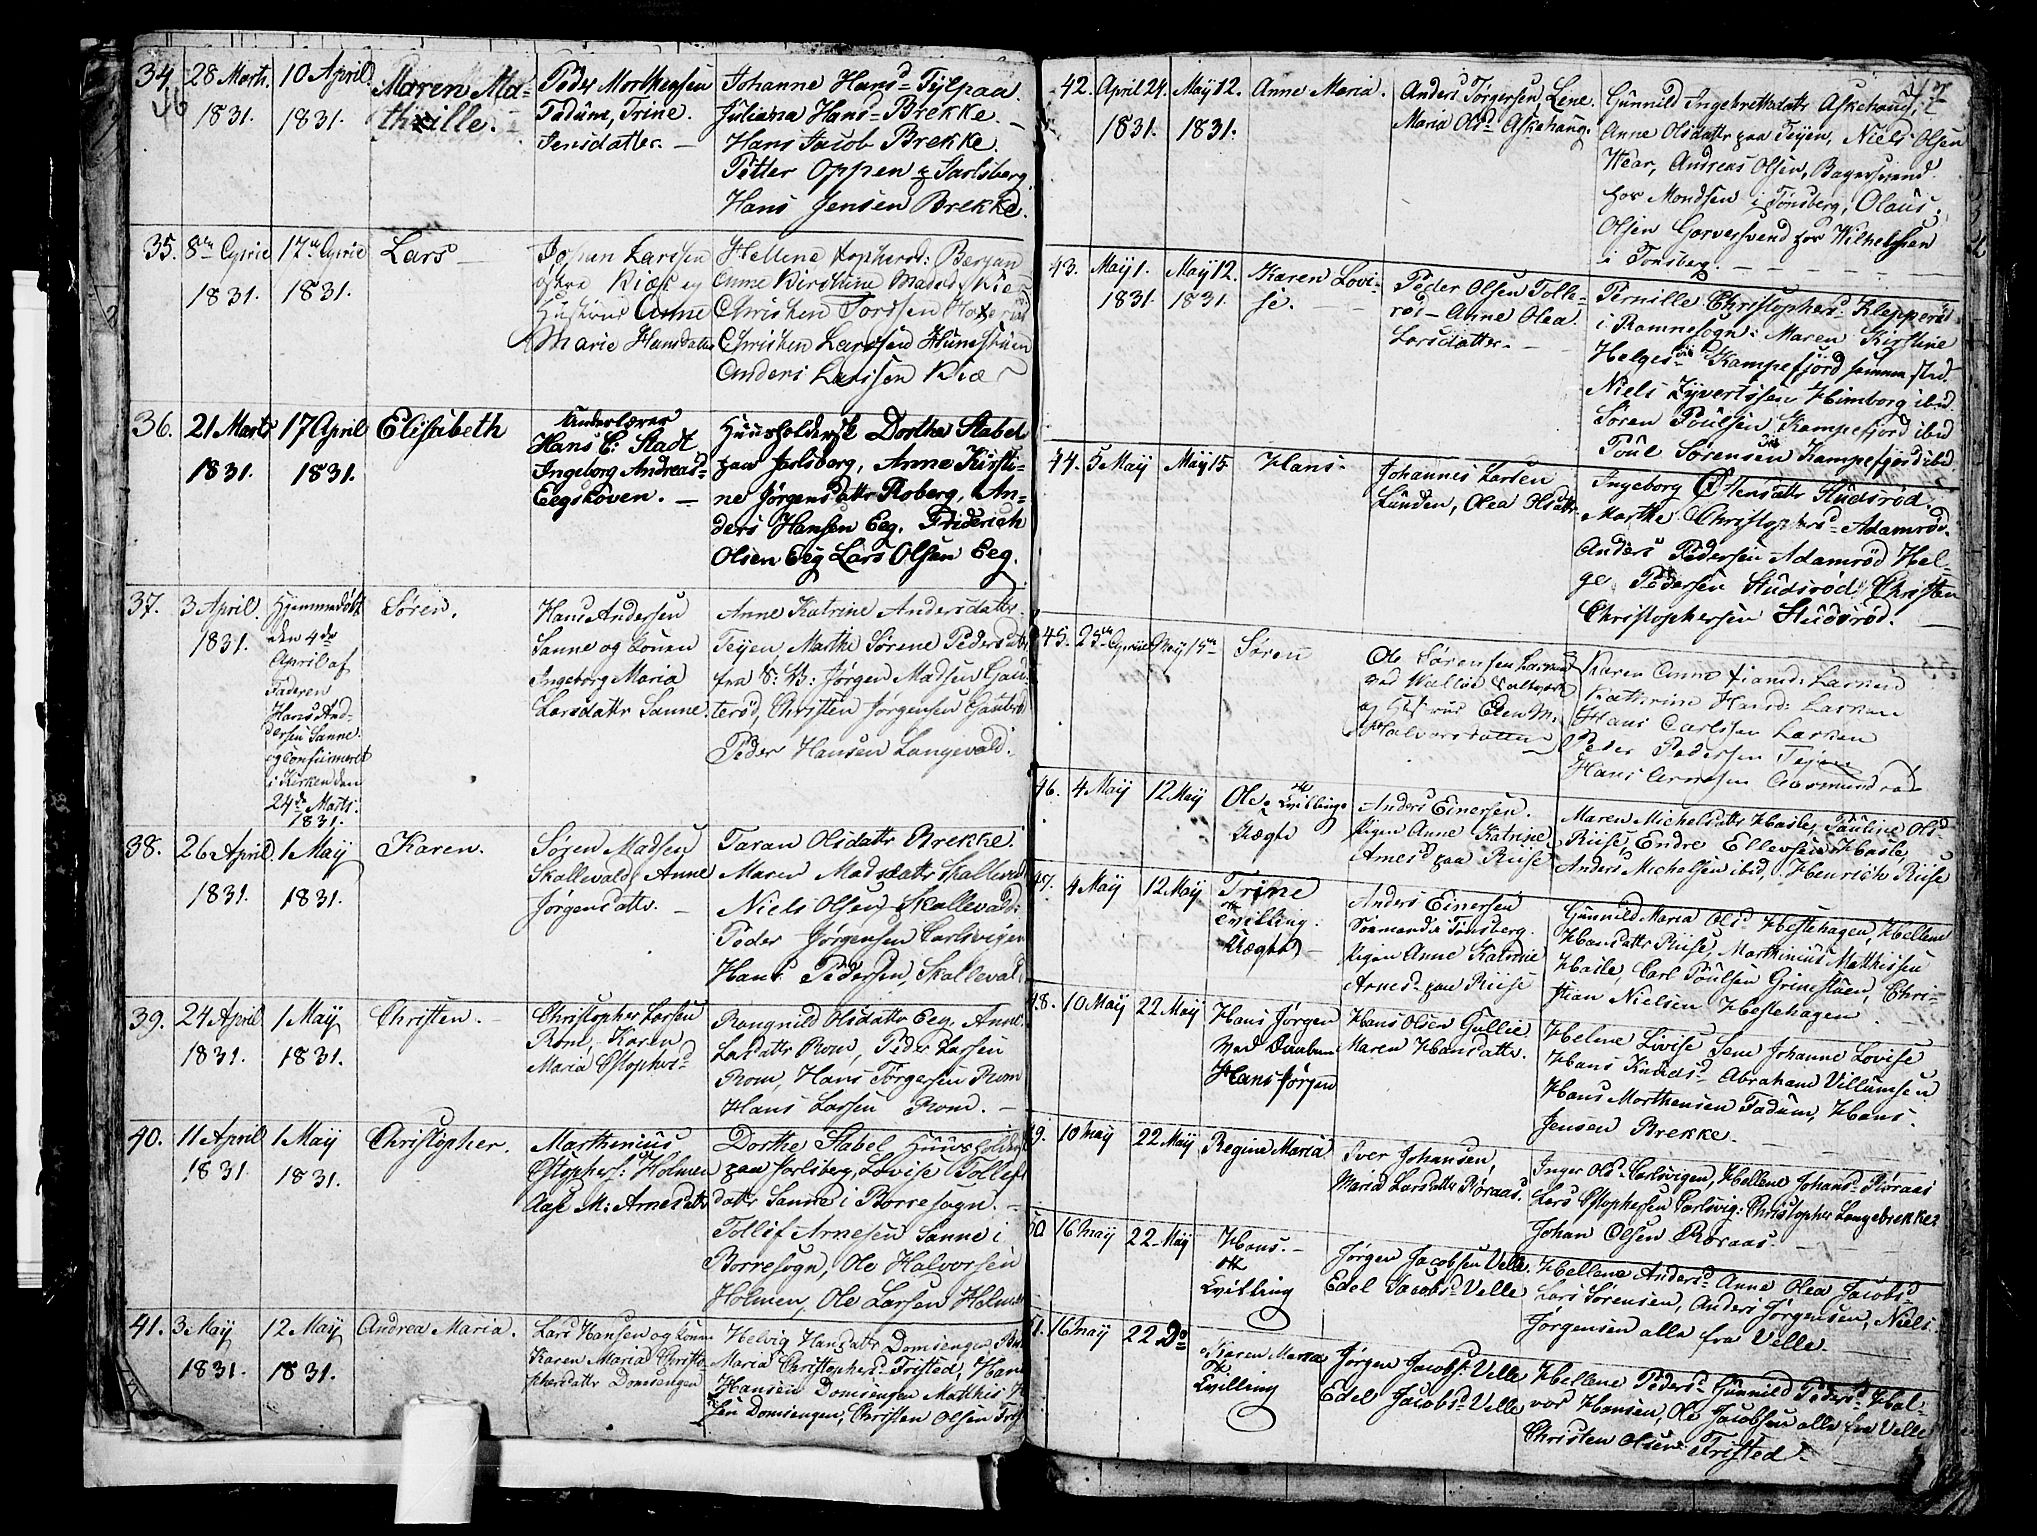 46
34. 28 Marts 1831. 10 April 1831. Maren Mathille.
Peder Morthensen
Tadum, Trine
Jensdatter.
Johanne Hans= Fylpaa.
Juliana Hans= Brekke.
Hans Jacob Brekke.
Petter Oppen Jarlsberg
Hans Jensen Brekke.
35. 8de April 1831. 17de April 1831. Lars
Johan Larssen
Hustrue Anne
Marie Hansdatter
Hellene
Anne Kirstine Madsd: Kiær
Christen Tordsen
Christen Larssen
Anders Larssen Kiær
36. 21 Marts 1831. 17 April 1831. Elisabeth
Hans C: Stadt
Ingeborg Andreasd=
Eegskoven.
Huusholdersk Dorthe Stabel
paa Jarlsberg, Anne Kirsti-
ne Jørgensdattr Roberg, An-
ders Hansen Eeg, Friderich
Olsen Eeg Lars Olsen Eeg.
37. 3 April 1831. Hjemmedøbt
den 4de
April af
Faderen
Hans And-
dersen Sanne
og Confirmeret
i Kirken den
24de Marts.
1831.
Søren.
Hans Andersen
Sanne og konen
Ingeborg Maria
Larsdattr Sanne.
Anne Katrine Andersdatter
Teyen Marthe Sørene Pedersdatr
fra S: B: Jørgen Madsen Gau-
terød, Christen Jørgensen Gauterød
Peder Hansen Langevald.
38. 26 April 1831. 1 May 1831. Karen.
Søren Madsen
Skallevald, Anne
Jørgensdattr.
Taran Olsdattr Brekke.
Maren Madsdattr Skallevald
Niels Olsen Skallevald:
Peder Jørgensen Carlsvigen
Hans Pedersen, Skallevald
39. 24 April 1831. 1 May 1831. Christen.
Christopher Larsen
Rom, Karen
Maria Christophersd
Rangnild Olsdattr Eeg, Anne
Larsdattr Rom, Peder Larsen
Rom, Hans Torgersen Rom
Hans Larsen Rom.
40. 11 April 1831. 1 May 1831. Christopher.
Marthenius
Christophers: Holmen
Aase M: Arnesdatr
Dorthe Stabel Huusholdersk
paa Jarlsberg, Lovise Tollefs
datr Sanne i Borresogn.
Tollif Arnesen Sanne i
Borresogn, Ole Halvorsen
Holmen, Ole Larsen Holmen
41. 3 May 1831. 12 May 1831. Andrea Maria.
Lars Hansen og konen
Karen Maria Christo-
phersdattr Domsengen
Helvig Hansdatr Domsengen
Maria Christophersd= Fristed, Hans
Hansen Domsengen Mathis
sen Domsengen, Christen Olsen
47
42. April 24. 1831. May 12. 1831. Anne Maria.
Anders Torgersen, Lene
Maria Olsd= Askehaug.
Gunnild Ingebretsdatr Askehaug,
Anne Olsdattr paa Teyen, Niels Olsen
Wear, Andreas Olsen, Bagersvend
for Mondsen i Tønsberg, Olaus
Olsen Garversvend for Wilhelmsen
i Tønsberg.
43. May 1. 1831. May 12. 1831. Karen Lovi-
se.
Peder Olsen Tolle-
rød - Anne Olea
Larsdatter.
Pernille Christophersd= Klepperød
i Ramnesogn: Maren Kirstine
Helgesd Kampefjord samme sted.
Niels Syvertssen Himborg ibid.
Søren Poulsen Kampefjord ibid
Poul Sørensen Kampefjord ibid
44. 5 May May 15. Hans.
Johannes Larsen
Lunden, Olea Olsdattr.
Ingeborg Ottersdattr Studsrød.
Marthe Christophersd= Adamrød.
Anders Pedersen Adamrød Hel-
ge Pedersen Studsrød. Christen
Christophersen Studsrød.
45. 25de April May 15de Søren
Ole Sørensen
ved Walløe Saltværk
og Hustrue Elen M.
Halvorsdatter
Karen Anne
Kathrine Hansd:
Hans Carlssen
Peder Pedersen Teyen
Hans Arnesen Aasmundrød
46. 4 May 12 May Ole. Tvilling
Uægte
Anders Einersen.
Pigen Anne Katrine
Arnesd paa Riise
Maren Michelsdatr Hasle, Pauline Olsd
Riise, Endre Ellevsen Hasle,
Anders Michelsen ibid, Henrich Riise
47. 4 May 12 May Trine
Tvilling.
Uægte
Anders Einersen
Sømand i Tønsberg.
Pigen Anne Katrine
Arnesd= paa Riise
Gunnild Maria Olsd Hestehagen, Hellene
Hansdattr Riise, Marthinius Mathissen
Hasle, Carl Poulsen Grimstuen, Chri-
stian Nielsen Hestehagen.
48. 10 May 22 May Hans Jørgen
ved Daaben
Hans Jørgen
Hans Olsen Gullie
Maren Hansdattr.
Helene Livise Sem Johanne Lovise
Hans Knudsd= Abraham Villumsen
Hans Morthensen Tadum, Hans
Jensen Brekke.
49. 10 May 22 May Regine Maria
Iver Johansen,
Maria Larsdattr Røraas.
Inger Olsd= Carlsvigen, Hellene Johansd= Røraas
Lars Christophersen Carlsvig: Christopher Langebrekke
Johan Olsen Røraas.
50. 16 May 22 May Hans.
Tvilling
Jørgen Jacobsen Velle
Edel Jacobsd= Velle
Hellene Andersd= Anne Olea Jacobsd=
Lars Sørensen, Anders Jørgensen, Niels
Jørgensen alle fra Velle.
51. 16 May 22 Do Karen Maria
Tvilling
Jørgen Jacobs: Velle
Edel Jacobsd= Velle
Hellene Pedersd= Gunnild Pedersd= Hal-
vor Hansen, Ole Jacobsen alle fra Velle
Christen Olsen Fristed.